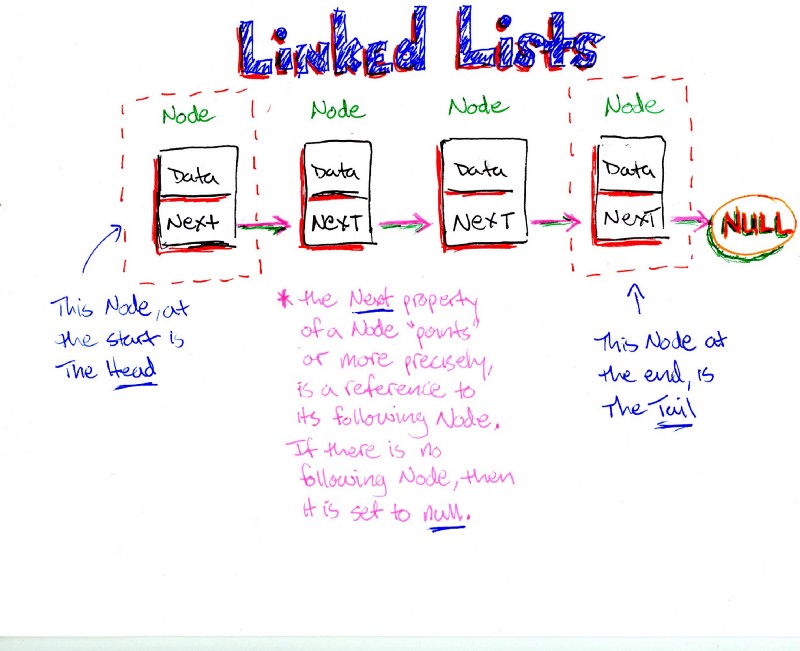 Linked Lists
Node Node Node Node
Data Data Data Data
Next Next Next Next
NULL
This Node, at
the start is
The Head
* the Next property
of a Node "points"
or more precisely,
is a reference to
its following Node.
If there is no
following Node, then
it is set to null.
This Node at
the end, is
The Tail